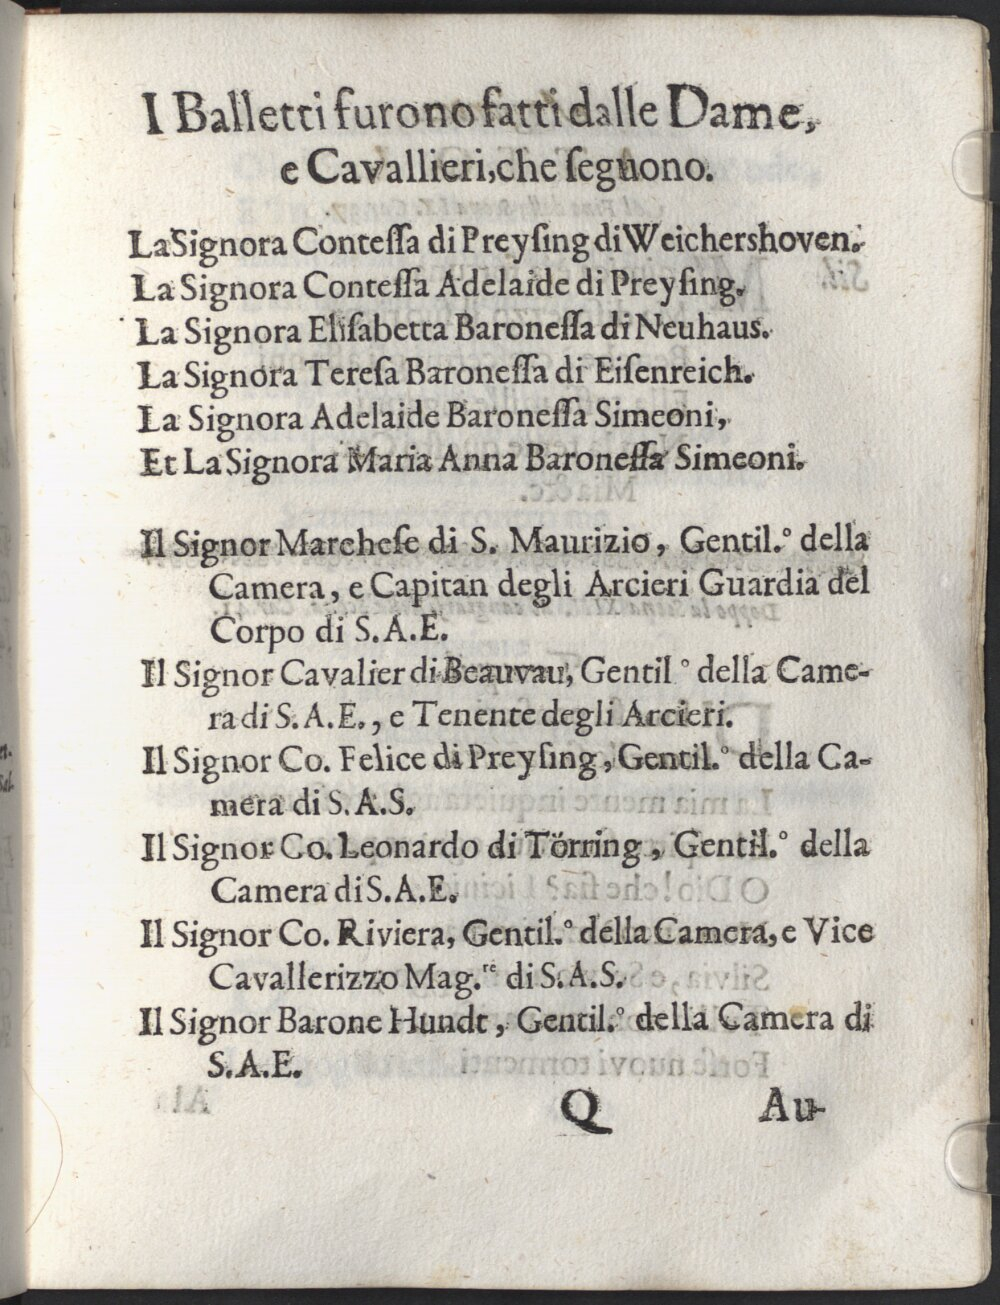 I Balletti furono fatti dalle Dame,
e Cavallieri, che ſeguono.
La Signora Conteſſa di Preyſing di Weichershoven.
La Signora Conteſſa Adelaide di Preyſing.
La Signora Eliſabetta Baroneſſa di Neuhaus.
La Signora Tereſa Baroneſſa di Eiſenreich.
La Signora Adelaide Baroneſſa Simeoni,
Et La Signora Maria Anna Baroneſſa Simeoni.
Il Signor Marcheſe di S. Maurizio, Gentil.° della
Camera, e Capitan degli Arcieri Guardia del
Corpo di S.A.E.
Il Signor Cavalier di Beauvau, Gentil ° della Came-
ra di S.A.E., e Tenente degli Arcieri.
Il Signor Co. Felice di Preyſing, Gentil.° della Ca-
mera di S.A.S.
Il Signor Co. Leonardo di Törring, Gentil.° della
Camera di S.A.E.
Il Signor Co. Riviera, Gentil.° della Camera, e Vice
Cavallerizzo Mag.re di S.A.S.
Il Signor Barone Hundt, Gentil.° della Camera di
S.A.E.
Q Au-